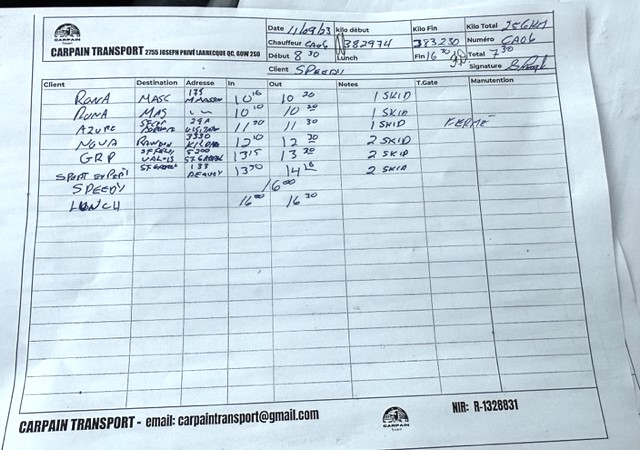 CARPAIN
CARPAIN TRANSPORT 2755 JOSEPH PRIVÉ LABRECQUE QC, GOW 2S0
Date 11/09/23 kilo début 382974 Kilo Fin 383.230 Kilo Total 256KM
Chauffeur CA06 Numéro CA06
Début 8 30 Lunch Fin 16 30 Total 7 30
Client SPEEDY Signature
Client Destination Adresse In Out Notes T.Gate Manutention
RONA MASC 175 10 10 20 1 SKID
RONA MAS 10 10 10 20 1 SKID
AZURE 11 30 1 SKID FERMÉ
NOVA RAWDON 3330 12 10 12 30 2 SKID
GRP ST FELIX VALOIS 5200 ST GABRIEL 13 15 13 20 2 SKID
SPORT EXPERT ST GABRIEL 133 13 50 14 2 SKID
SPEEDY 16 00
LUNCH 16 00 16 30
CARPAIN TRANSPORT - email: carpaintransport@gmail.com
CARPAIN
NIR: R-1328831